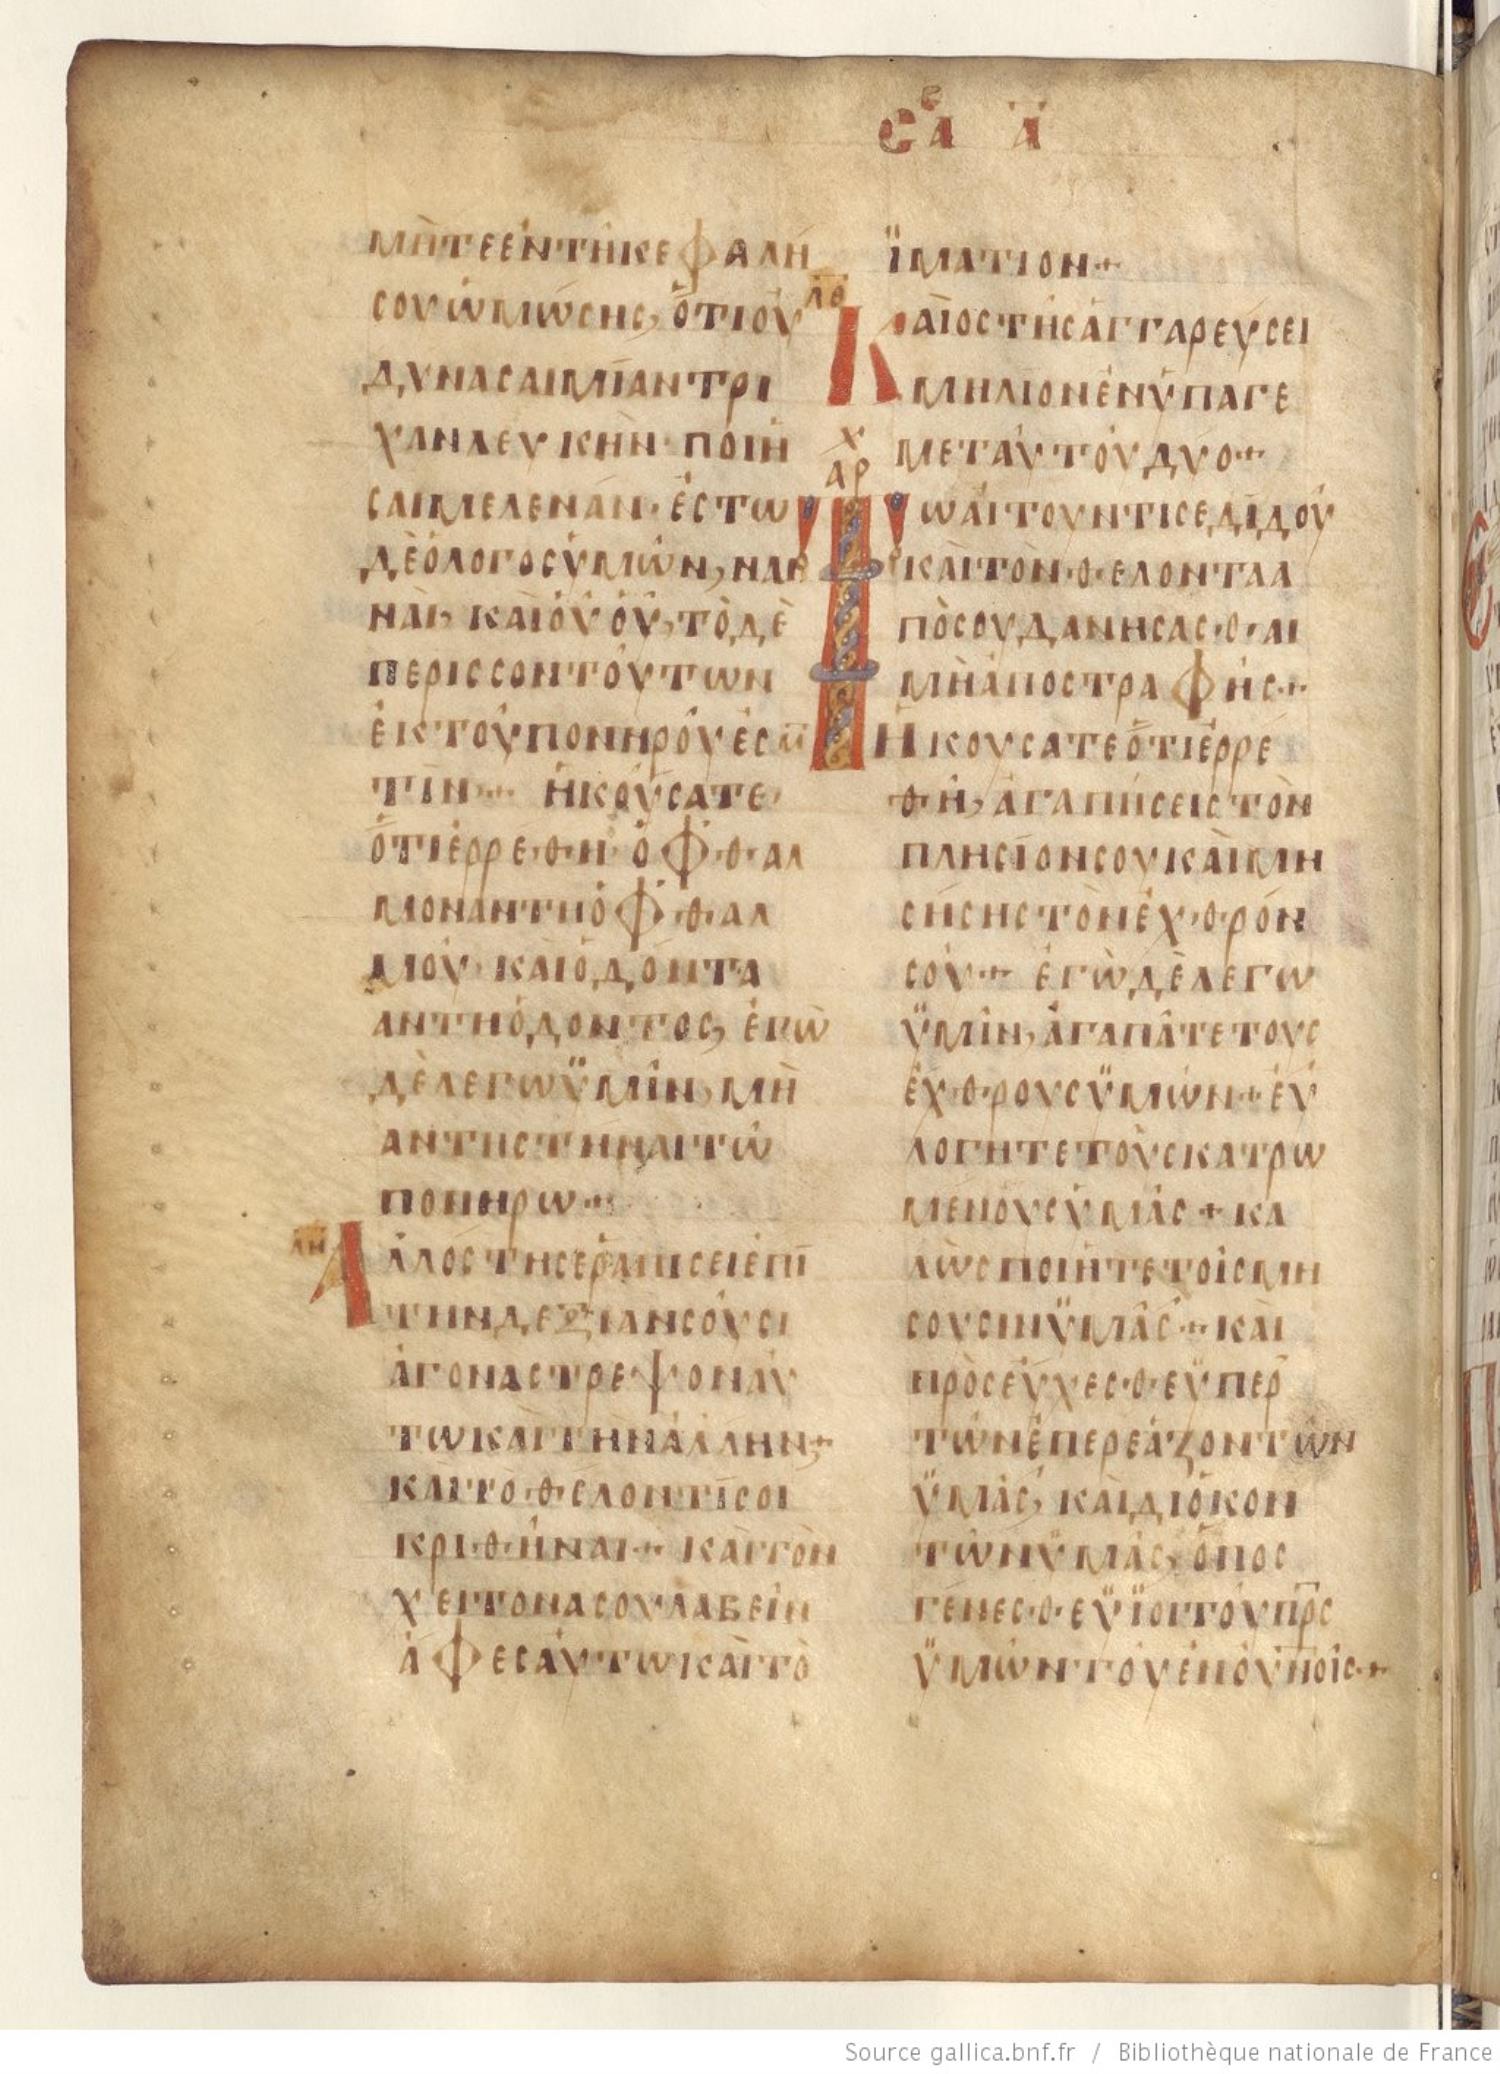 Ε̅ α̅ α̅
μὴτεἐντῆκεφαλῆ
σουὠμώσης, ὅτιοὐ
δυνασαιμΐαντρι
χανλευκὴν· ποιῆ
σαιμελεναν· ἐστω
δὲὁλογοσὑμῶν, ναι
ναὶ, καὶοὐοὐ, τὸδὲ
περισσοντούτων
ἐκτοῦπονηροῦἐσ
τὶν·+ ἠκούσατε
ὅτιἐρρεθη· ὀφθαλ
μοναντηὀφθαλ
μοῦ· καὶὀδόντα
αντηὀδοντος, ἐγὼ
δὲλεγωϋμῖν, μὴ
αντηστηναιτῶ
πονηρω·+
λη
Αλλοστησεράπισειἐπῒ
τηνδεξιανσοῦσι
ἀγοναστρεψοναὐ
τωκαὶτὴνἀλλην+
καὶτοθελοντΐσοι
κριθῆναι·+ καὶτὸν
χειτονασουλαβεῖν
ἀφεσαὐτωκαὶτὸ
ϊματιον·+
λθ
Καῒοστῆσἀγγαρεύσει
μηλιονἐνὑπαγε
μεταὐτοῦδυο·+
χ
αρ
Τωαἰτουντισεδΐδου
καὶτὸνθελονταα
πὸσουδανησασθαι
μὴἀποστραφῆς·+
μ
Ηκουσατεὅτιἐρρε
θη, ἀγαπήσειστὸν
πλησΐονσουκαὶμη
σήσηςτὸνἐχθρόν
σοῦ·+ ἐγὼδὲλεγω
ϋμῖν, ἀγαπᾶτετους
ἐχθρουσϋμῶν·+ εὐ
λογητετοὺσκατρω
μένουσὑμᾶς·+ κα
λῶσποιῆτετοῖσμη
σουσινϋμᾶς·+ καὶ
πρὸσεύχεσθεϋπερ
τῶνἐπερεάζοντων
ϋμᾶς, καὶδιόκον
τῶνϋμᾶς, ὅπος
γένεσθεϋϊοιτοῦπρ̅ς
ϋμῶντοῦἐνοὐν̅οῖς·+
Source gallica.bnf.fr / Bibliothèque nationale de France